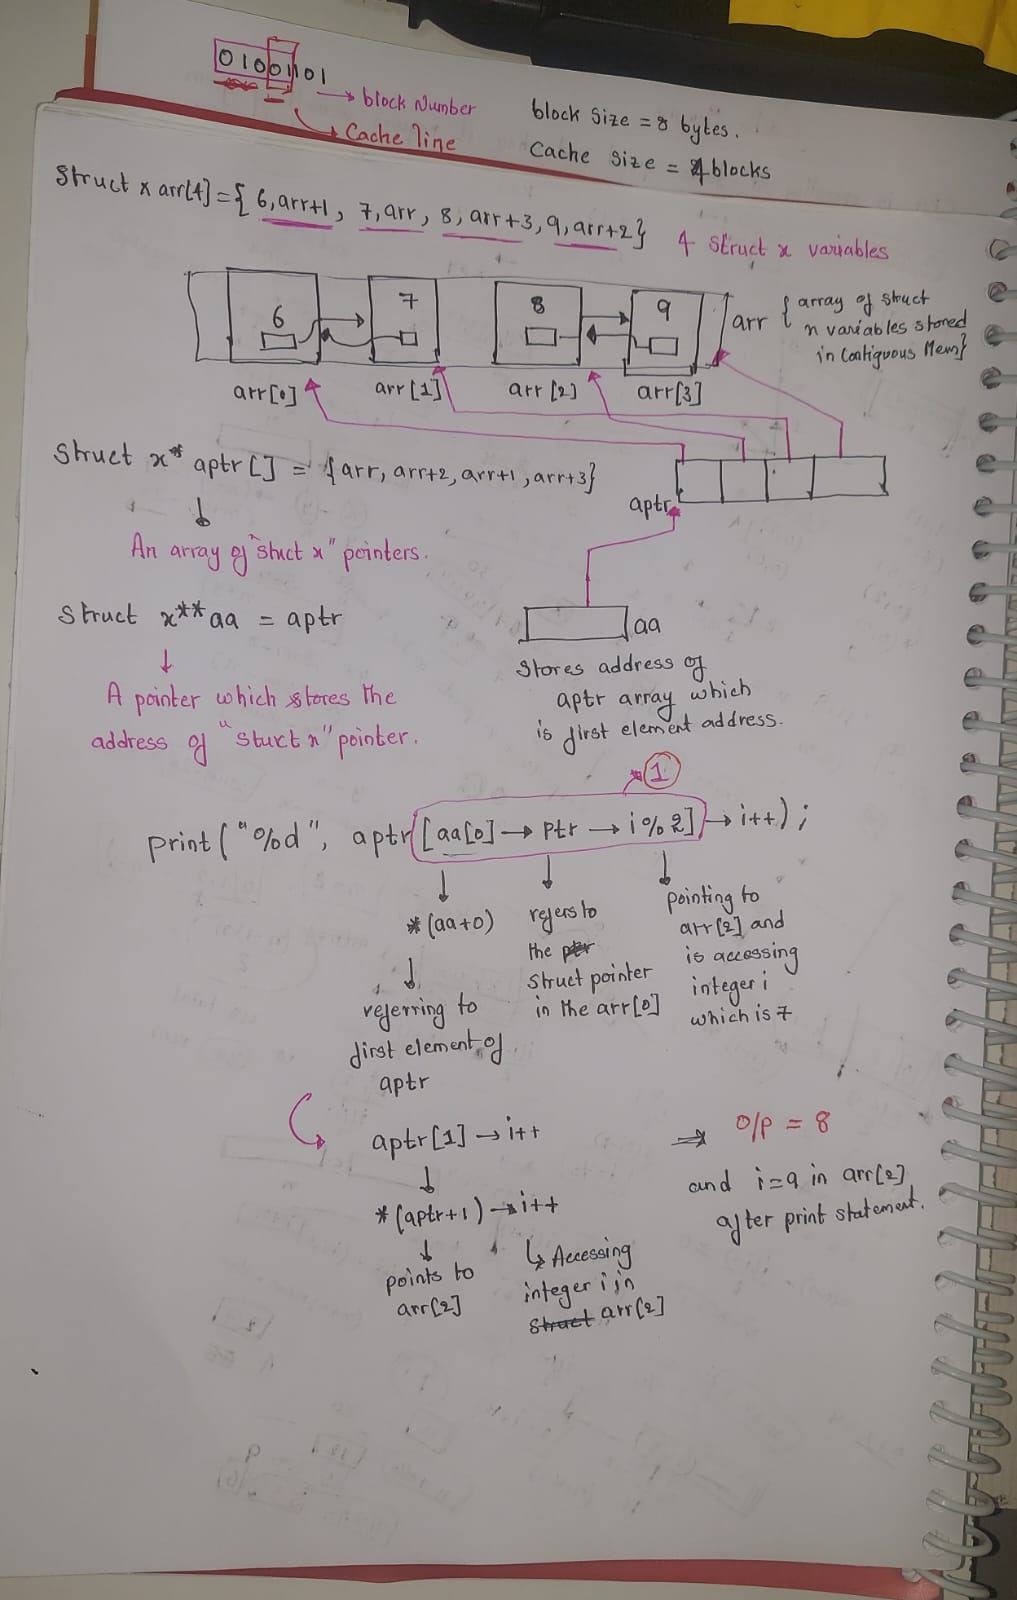 01001101
→ block Number
→ Cache line
block size = 8 bytes.
Cache size = 4 blocks
Struct x arr[4] = { 6, arr+1, 7, arr, 8, arr+3, 9, arr+2}
4 Struct x variables
6 7 8 9
arr { array of struct
x variables stored
in Contiguous Mem}
arr[0] arr[1] arr[2] arr[3]
Struct x* aptr[] = {arr, arr+2, arr+1, arr+3}
aptr
An array of "stuct x" pointers.
Struct x** aa = aptr
aa
Stores address of
aptr array which
is first element address.
A pointer which stores the
address of "stuct x" pointer.
1
print("%d", aptr[aa[0]→ptr→i%2]→i++);
*(aa+0)
referring to
first element of
aptr
refers to
the ptr
struct pointer
in the arr[0]
pointing to
arr[2] and
is accessing
integer i
which is 7
aptr[1]→i++
*(aptr+1)→i++
points to
arr[2]
↳ Accessing
integer i in
struct arr[2]
⇒ O/P = 8
and i=9 in arr[2]
after print statement.